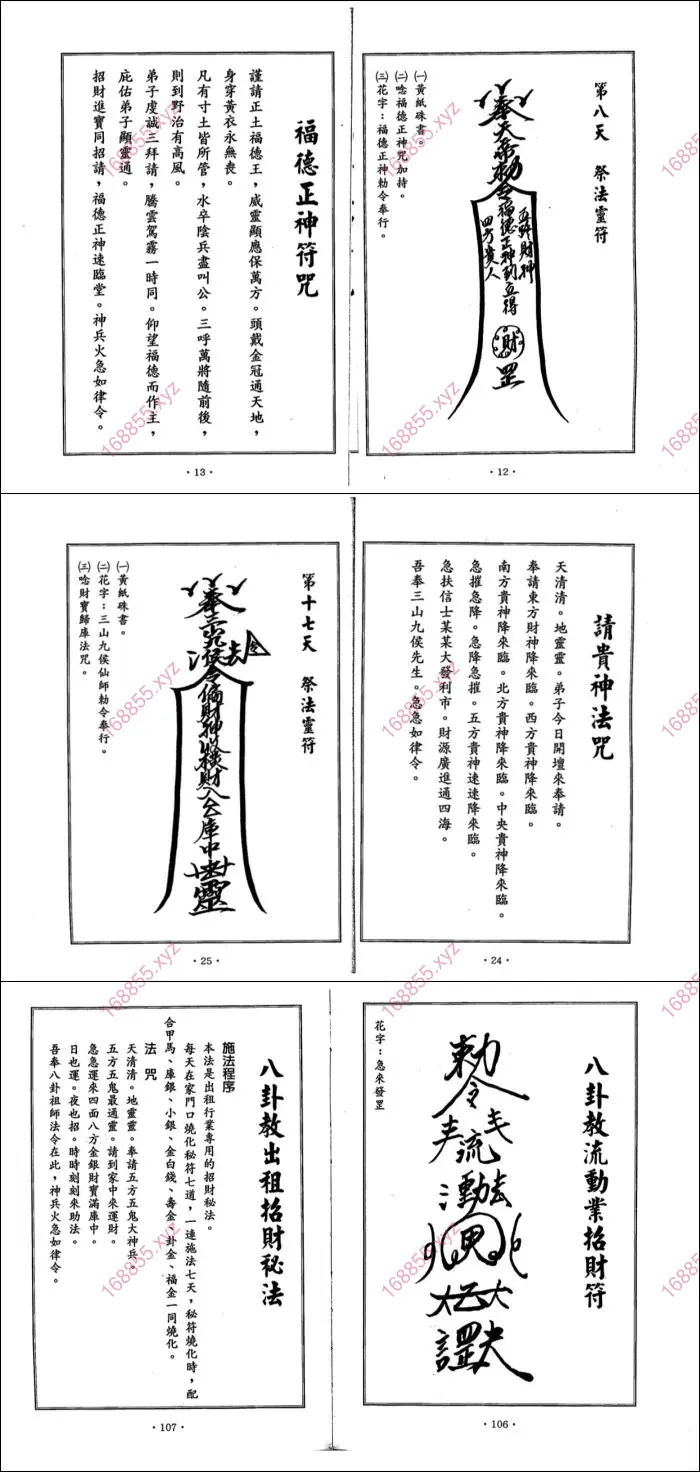 第八天　祭法靈符
奉天帝勅令福德正神到立得
五路財神
四方貴人
財
罡
㈠黃紙硃書。
㈡唸福德正神咒加持。
㈢花字：福德正神勅令奉行。
·12·
福德正神符咒
謹請正土福德王，威靈顯應保萬方。頭戴金冠通天地，
身穿黃衣永無喪。
凡有寸土皆所管，水卒陰兵盡叫公。三呼萬將隨前後，
則到野治有高風。
弟子虔誠三拜請，騰雲駕霧一時同。仰望福德而作主，
庇佑弟子顯靈通。
招財進寶同招請，福德正神速臨堂。神兵火急如律令。
·13·
請貴神法咒
天清清。地靈靈。弟子今日開壇來奉請。
奉請東方財神降來臨。西方貴神降來臨。
南方貴神降來臨。北方貴神降來臨。中央貴神降來臨。
急摧急降。急降急摧。五方貴神速速降來臨。
急扶信士某某大發利市。財源廣進通四海。
吾奉三山九侯先生。急急如律令。
·24·
第十七天　祭法靈符
令偏財神收橫財入公庫中
靈
㈠黃紙硃書。
㈡花字：三山九侯仙師勅令奉行。
㈢唸財寶歸庫法咒。
·25·
八卦教流動業招財符
勅令
流
動
花字：急來發罡
·106·
八卦教出租招財秘法
施法程序
本法是出租行業專用的招財秘法。
每天在家門口燒化秘符七道，一連施法七天，秘符燒化時，配
合甲馬、庫銀、小銀、金白錢、壽金、卦金、福金一同燒化。
法　咒
天清清。地靈靈。奉請五方五鬼大神兵。
五方五鬼最通靈。請到家中來運財。
急急運來四面八方金銀財寶滿庫中。
日也運。夜也招。時時刻刻來助法。
吾奉八卦祖師法令在此，神兵火急如律令。
·107·
168855.xyz